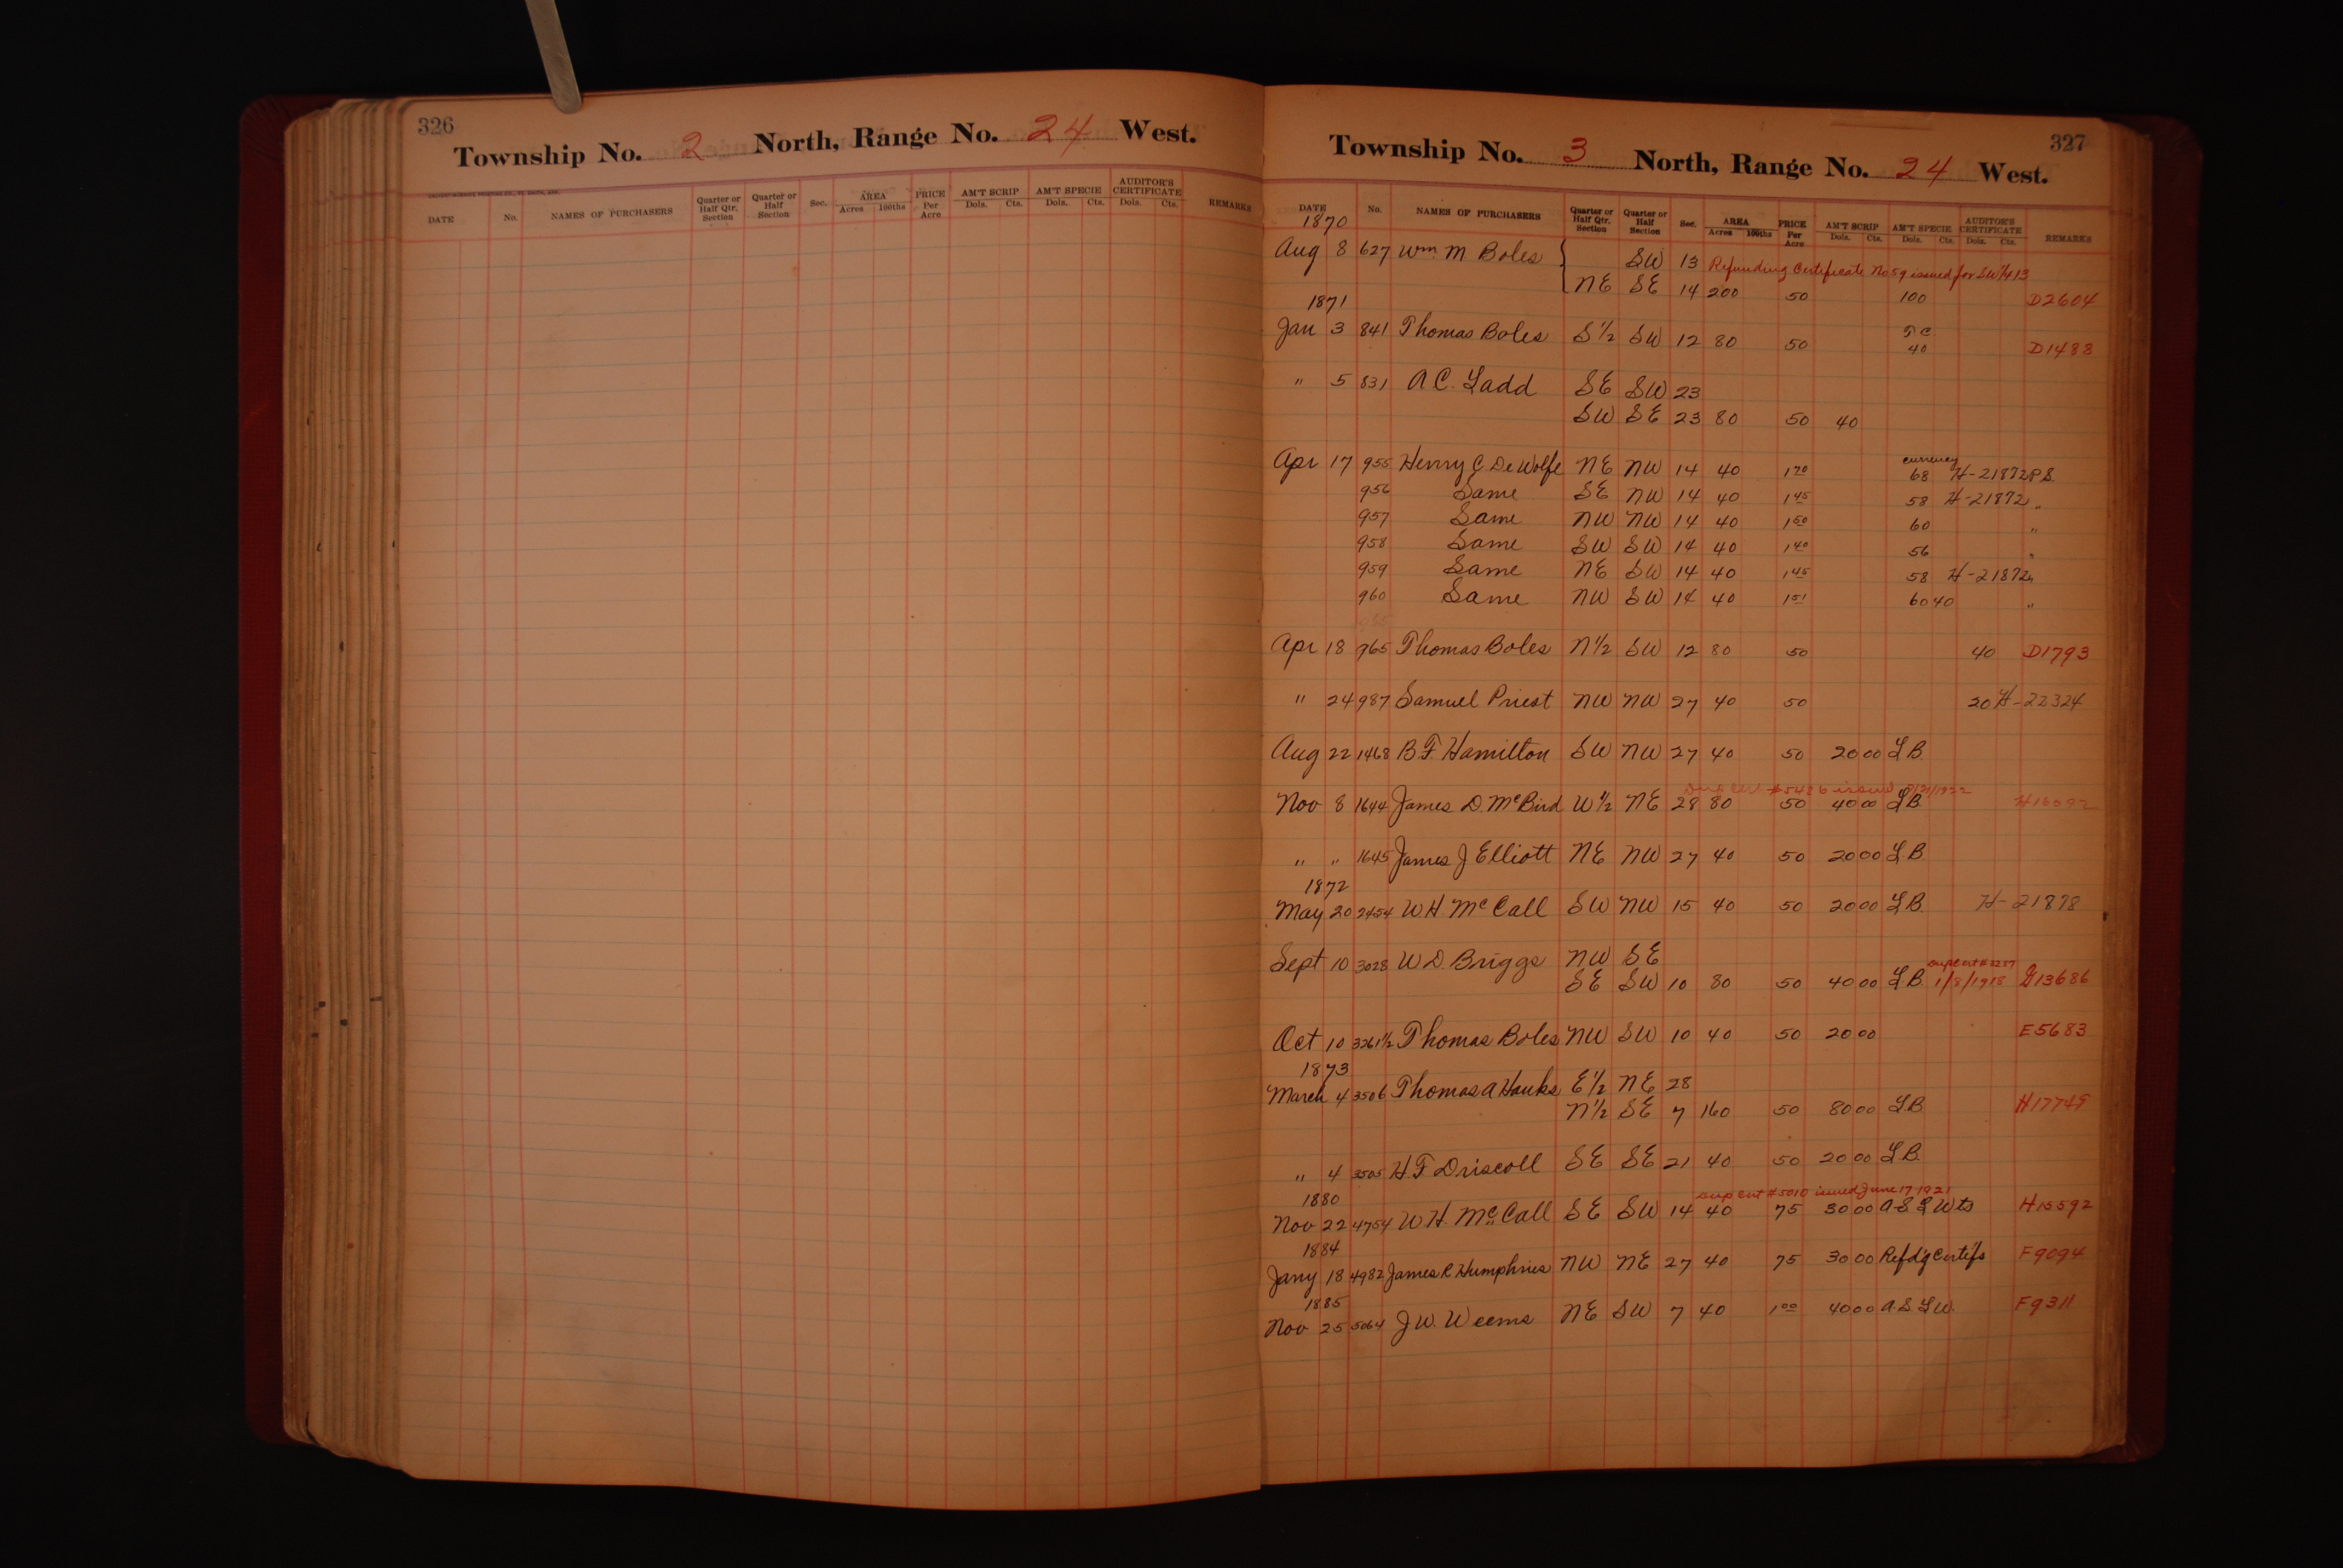 326
Township No. 2 North, Range No. 24 West.
DATE No. NAMES OF PURCHASERS Quarter or Half Qtr. Section Quarter or Half Section Sec. AREA Acres 100ths PRICE Per Acre AM'T SCRIP Dols. Cts. AM'T SPECIE Dols. Cts. AUDITOR'S CERTIFICATE Dols. Cts. REMARKS
327
Township No. 3 North, Range No. 24 West.
DATE No. NAMES OF PURCHASERS Quarter or Half Qtr. Section Quarter or Half Section Sec. AREA Acres 100ths PRICE Per Acre AM'T SCRIP Dols. Cts. AM'T SPECIE Dols. Cts. AUDITOR'S CERTIFICATE Dols. Cts. REMARKS
1870
Aug 8 627 Wm. M Boles SW 13 Refunding Certificate No 59 issued for SW 1/4 13
NE SE 14 200 50 100 D2604
1871
Jan 3 841 Thomas Boles S 1/2 SW 12 80 50 40 D1488
" 5 831 A C. Ladd SE SW 23
SW SE 23 80 50 40
Apr 17 955 Henry C DeWolfe NE NW 14 40 1 70 currency 68 H-21872 P S
956 Same SE NW 14 40 1 45 58 H-21872 "
957 Same NW NW 14 40 1 50 60 "
958 Same SW SW 14 40 1 40 56 "
959 Same NE SW 14 40 1 45 58 H-21872 "
960 Same NW SW 14 40 1 51 60 40 "
Apr 18 965 Thomas Boles N 1/2 SW 12 80 50 40 D1793
" 24 987 Samuel Priest NW NW 27 40 50 20 H-22324
Aug 22 1468 B. F. Hamilton SW NW 27 40 50 20 00 L B
Nov 8 1644 James D. McBird W 1/2 NE 28 80 50 40 00 L B
" " 1645 James J Elliott NE NW 27 40 50 20 00 L B
1872
May 20 2454 W H. McCall SW NW 15 40 50 20 00 L B. H-21878
Sept 10 3028 W D. Briggs NW SE
SE SW 10 80 50 40 00 L B 1/8/1918 G13686
Oct 10 3261 1/2 Thomas Boles NW SW 10 40 50 20 00 E5683
1873
March 4 3506 Thomas A Hanks E 1/2 NE 28
N 1/2 SE 7 160 50 80 00 L B H17749
" 4 3505 H F Driscoll SE SE 21 40 50 20 00 L B
1880 Dup cert #5010 issued June 17 1921
Nov 22 4754 W H. McCall SE SW 14 40 75 30 00 A S L Wts H15592
1884
Jany 18 4982 James R Humphries NW NE 27 40 75 30 00 Refd'g Certifs F9094
1885
Nov 25 5064 J W. Weems NE SW 7 40 1 00 40 00 A. S. L W. F9311